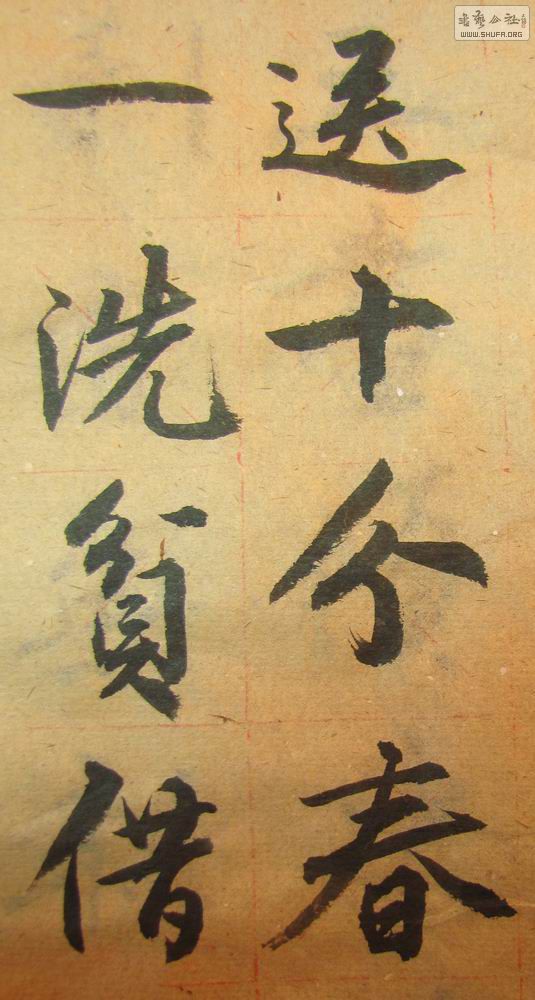 送十分春
一洗貧借
書藝公社
WWW.SHUFA.ORG